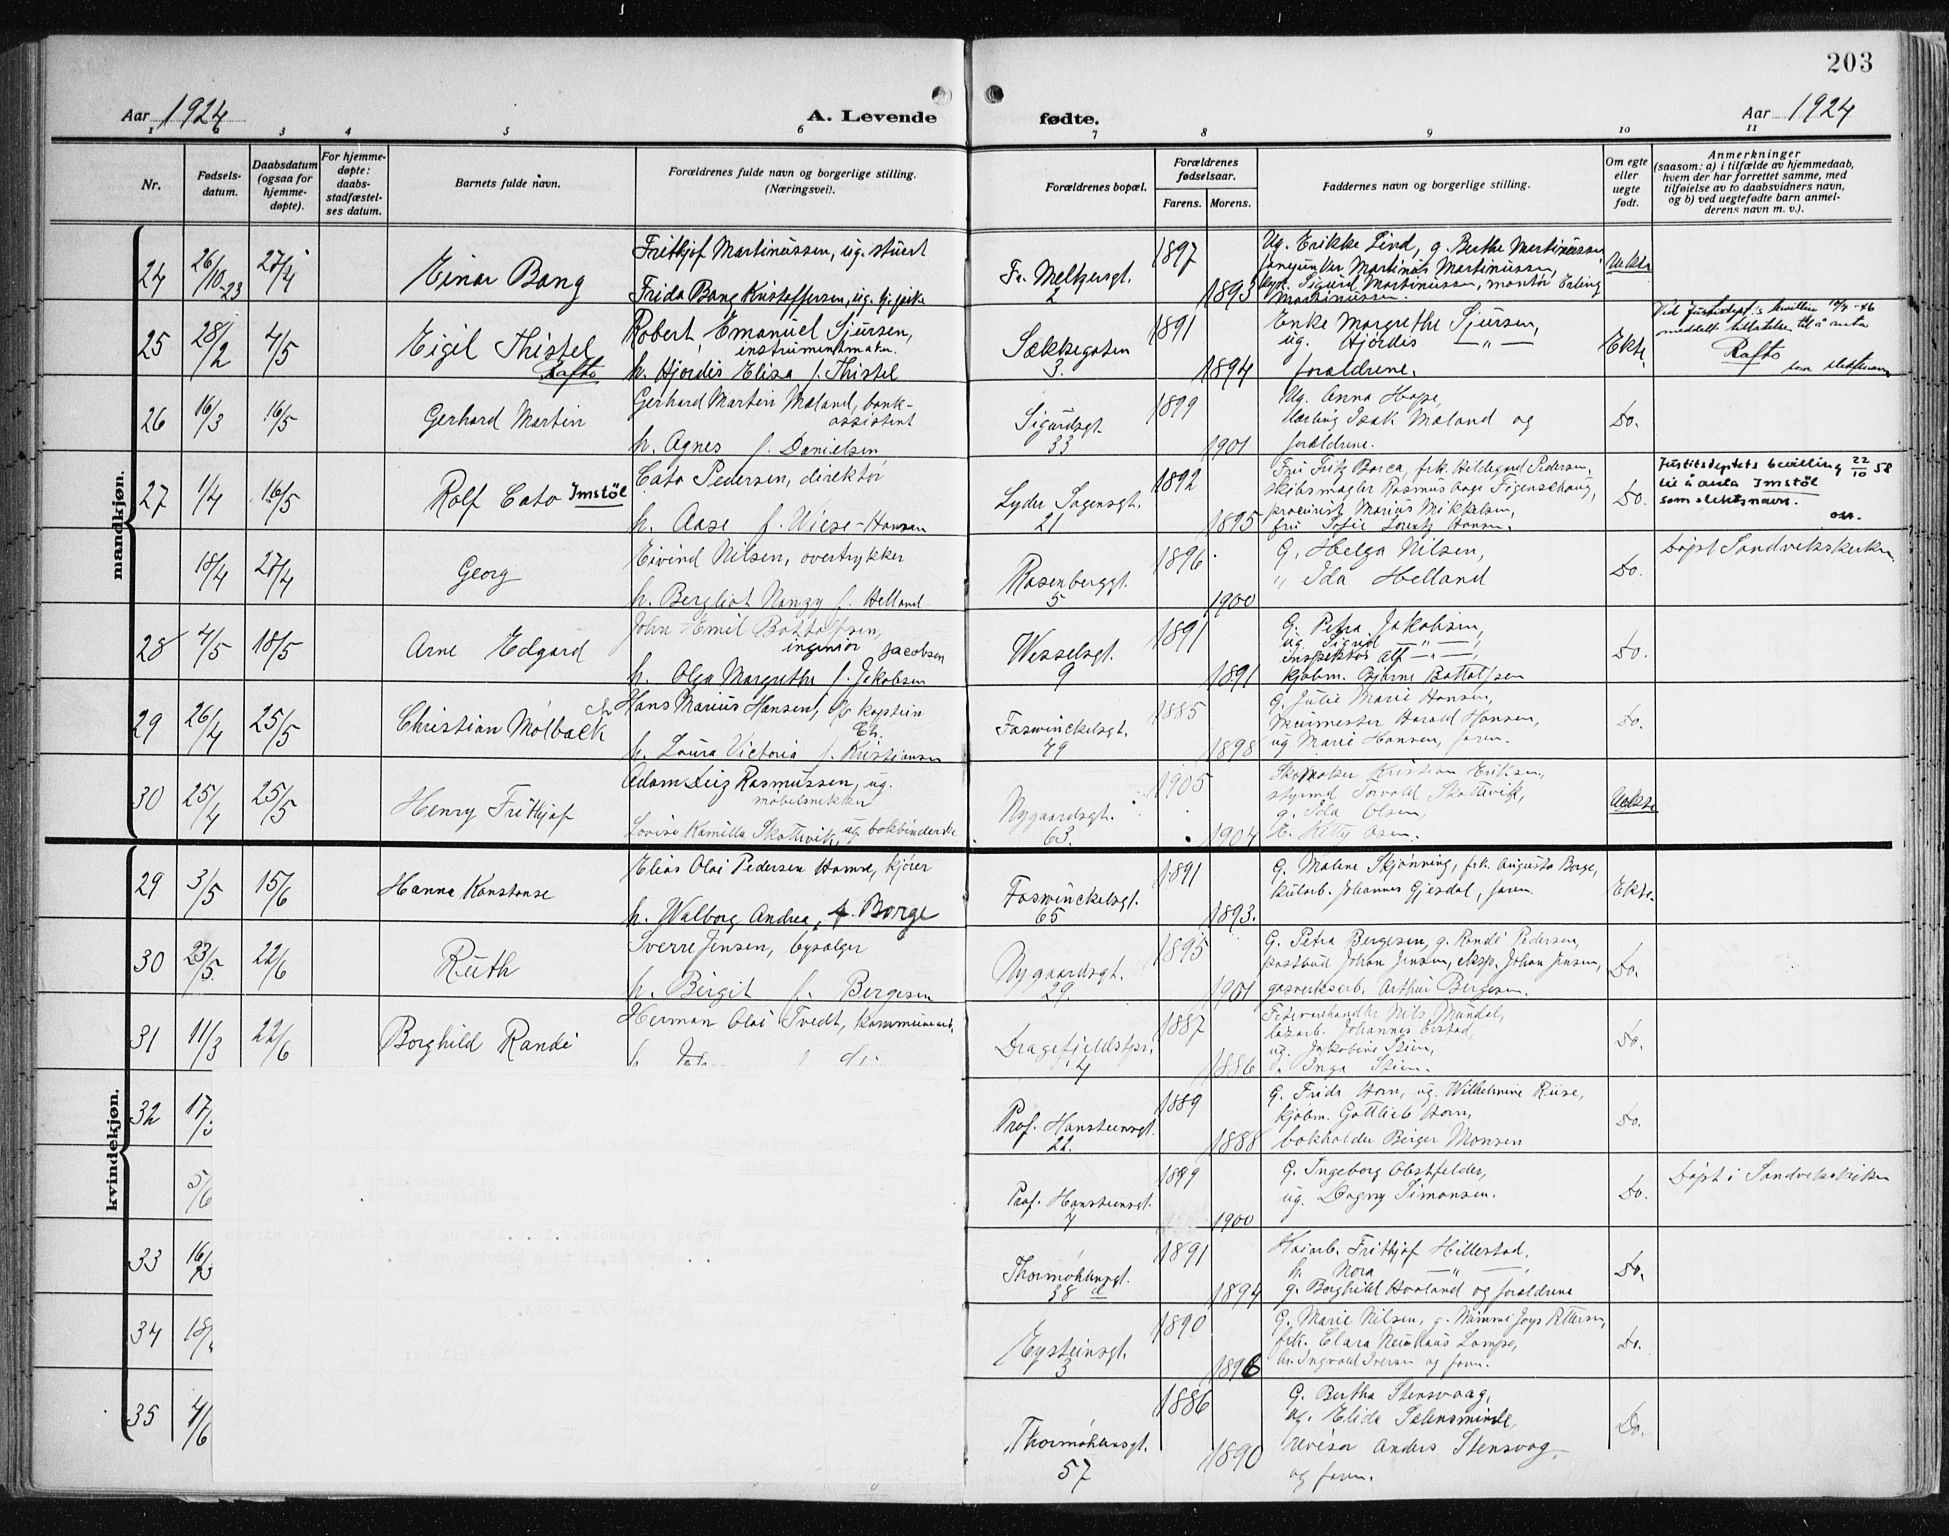 203
Aar 1924
A. Levende
fødte.
Aar 1924
1 2 3 4 5 6 7 8 9 10 11
Nr.
Fødsels-
datum.
Daabsdatum
(ogsaa for
hjemme-
døpte).
For hjemme-
døpte:
daabs-
stadfæstel-
ses datum.
Barnets fulde navn.
Forældrenes fulde navn og borgerlige stilling.
(Næringsvei).
Forældrenes bopæl.
Forældrenes
fødselsaar.
Farens. Morens.
Faddernes navn og borgerlige stilling.
Om egte
eller
uegte
født.
Anmerkninger
(saasom: a) i tilfælde av hjemmedaab,
hvem der har forrettet samme, med
tilføielse av to daabsvidners navn,
og b) ved uegtefødte barn anmel-
derens navn m. v.).
mandkjøn.
24 26/10 23 27/4 Einar Bang
Frithjof Martinussen, ug. stuert
Frida Bang Kristoffersen, ug.
Fr. Meltzersgt. 2
1897 1893
Ug. Erikke Lind, g. Berthe Martinussen,
Martinus Martinussen,
Sigurd Martinussen, montør Erling
Martinussen.
Uekte
25 28/2 4/5 Eigil Thistel
Rafto
Robert Emanuel Sjursen,
instrumentmaker.
h. Hjørdis Elisa f. Thistel
Sækkegaten 3.
1891 1894
Enke Margrethe Sjursen,
ug. Hjørdis — " —
forældrene.
Ekte.
Rafto
som slektsnavn
26 16/3 16/5 Gerhard Martin
Gerhard Martin Mæland, bank-
assistent
h. Agnes f. Danielsen
Sigurdsgt. 33
1899 1901
Ug. Anna Hope,
Isak Mæland og
forældrene.
Do.
27 1/4 16/5 Rolf Cato Imstöl
Cato Pedersen, direktør
h. Aase f. Wiese-Hansen
Lyder Sagensgt. 21
1892 1895
Fru Fritz Borca, frk. Hildegard Pedersen,
skibsmægler Rasmus Aage Figenschaug,
prokurist Marius Mikkelsen,
fru Sofie Lorentz Hansen.
Do.
Justitsdeptets bevilling 22/10 58
til å anta Imstöl
som slektsnavn.
18/4 27/4 Georg
Eivind Nilsen, overtrykker
h. Bergliot Nanzy f. Helland
Rosenberggt. 5
1896 1900
G. Helga Nilsen,
" Ida Helland
Do.
Døpt Sandvikskirken
28 4/5 18/5 Arne Edgard
John Emil Bottolfsen,
ingeniør Jacobsen
h. Olga Margrethe f. Jakobsen
Wesselsgt. 9
1891 1891
G. Petra Jakobsen,
ug. Sigrid — " —,
inspektør Alf — " —,
kjøbm. Bjarne Bottolfsen
Do.
29 26/4 25/5 Christian Molback
ch
Hans Marius Hansen, kaptein
Ch.
h. Laura Victoria f. Kristiansen
Foswinckelsgt. 49
1885 1898
G. Julie Marie Hansen,
murmester Harald Hansen,
ug. Marie Hansen, faren.
Do.
30 25/4 25/5 Henry Frithjof
Adam Leiz Rasmussen, ug.
møbelsnekker
Lovise Kamilla Skottevik, ug. bokbinderske
Nygaardsgt. 63.
1905 1904
Skomaker Kristian Eriksen,
styrmd Torvald Skottevik,
g. Ida Olsen,
Uekte
kvindekjøn.
29 3/5 15/6 Hanna Konstanse
Elias Olai Pedersen Hamre, kjører
h. Walborg Andrea, f. Borge
Foswinckelsgt. 65
1891 1893.
G. Malene Skjønning, frk. Augusta Borge,
kularb. Johannes Gjesdal, faren.
Ekte.
30 23/5. 22/6 Ruth
Sverre Jensen, bysælger
h. Birgit f. Bergesen
Nygaardsgt. 29.
1895 1901
G. Petra Bergesen, g. Randi Pedersen,
postbud Johan Jensen, eksp. Johan Jensen,
gasverksarb. Arthur Bergesen.
Do.
31 11/3 22/6 Borghild Randi
Herman Olai Tvedt, kommunearb.
Dragefjeldstpr. 4
1887 1886
Federnhandler Nils Mundal,
Johannes
ug. Jakobine Stien,
" Inga Stien.
Do.
32 17/5
Prof. Hansteensgt. 22.
1889 1888
G. Frida Horn, ug. Wilhelmine Riise,
kjøbm. Gottlieb Horn,
bokholder Birger Monsen
Do.
5/6
Prof. Hansteensgt. 7
1899 1900
G. Ingeborg Obstfelder,
ug. Dagny Simonsen.
Do.
Døpt i Sandvikskirken
33 16/
Thormøhlensgt. 38 d
1891 1894
Havarb. Frithjof Hillestad,
h. Nora — " —,
g. Borghild Hvaland og forældrene
Do.
34 18/
Eysteinsgt. 3
1890 1896
G. Marie Nilsen, g. Mimmi Joys Pettersen,
frk. Clara Neuhaus Lampe,
hr. Ingvald Iversen og faren.
Do.
35 4/6
Thormøhlensgt. 57
1886 1890
G. Bertha Stensvaag,
ug. Elida Sælensminde,
revisor Anders Stensvag,
og faren.
Do.